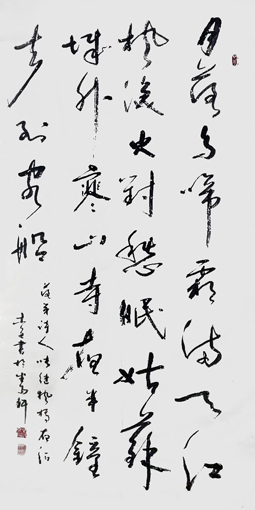 月落乌啼霜满天江
枫渔火對愁眠姑蘇
城外寒山寺夜半鐘
声到客船
落第诗人张继枫桥夜泊
书於